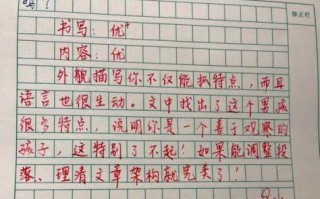 吗！
书写：优+
内容：优
外貌描写你不仅能抓特点，而且
语言也很生动。文中找出了这个男孩
很多特点，说明你是一个善于观察的
孩子，这特别了不起！如果能调整段
落、理清文章架构就完美了！